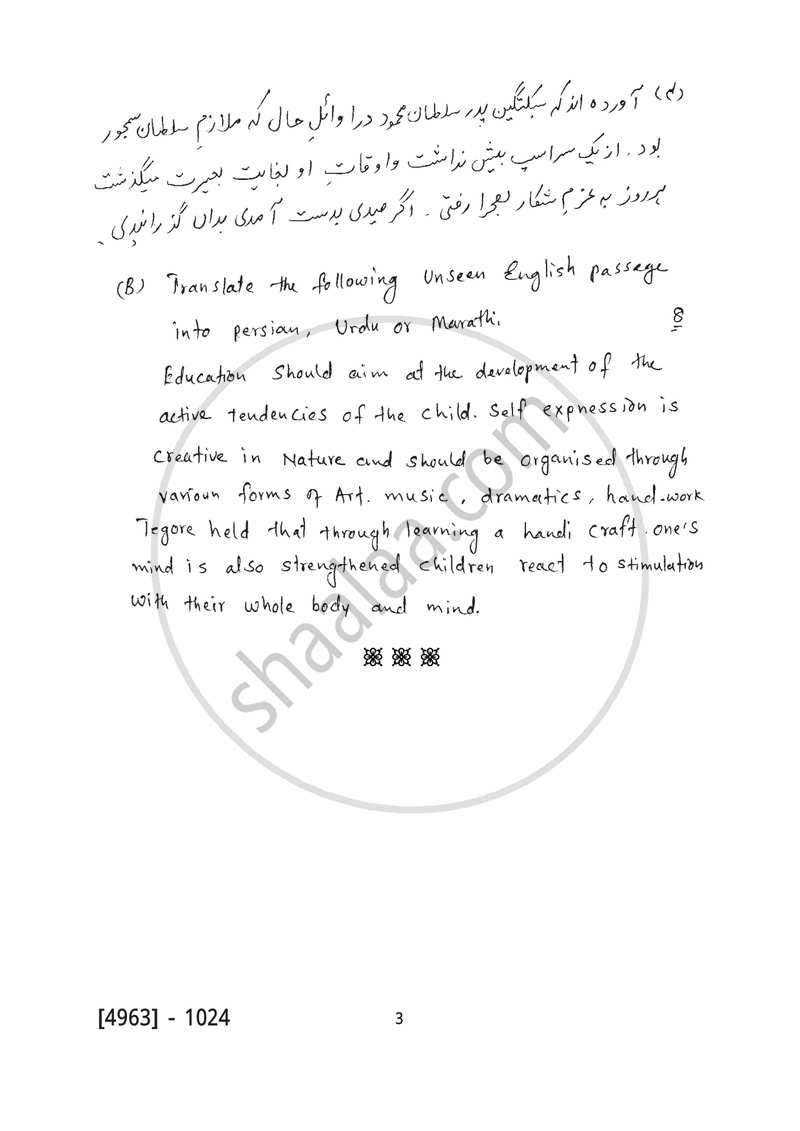 (د) آورده اند که سبکتگین پدر سلطان محمود در اوائلِ حال که ملازمِ سلطان سمجور
بود . از یک سر اسپ بیش نداشت و اوقاتِ او بغایت بعیرت میگذشت
هر روز به عزمِ شکار بصحرا رفتی . اگر صیدی بدست آمدی بداں گذرانیدی .
(B) Translate the following Unseen English passage
into persian, Urdu or Marathi. 8
Education Should aim at the development of the
active tendencies of the child. Self expnession is
Creative in Nature and should be organised through
varioun forms of Art. music, dramatics, hand-work
Tegore held that through learning a handi craft. one's
mind is also strengthened children react to stimulation
with their whole body and mind.
shaalaa.com
[4963] - 1024 3